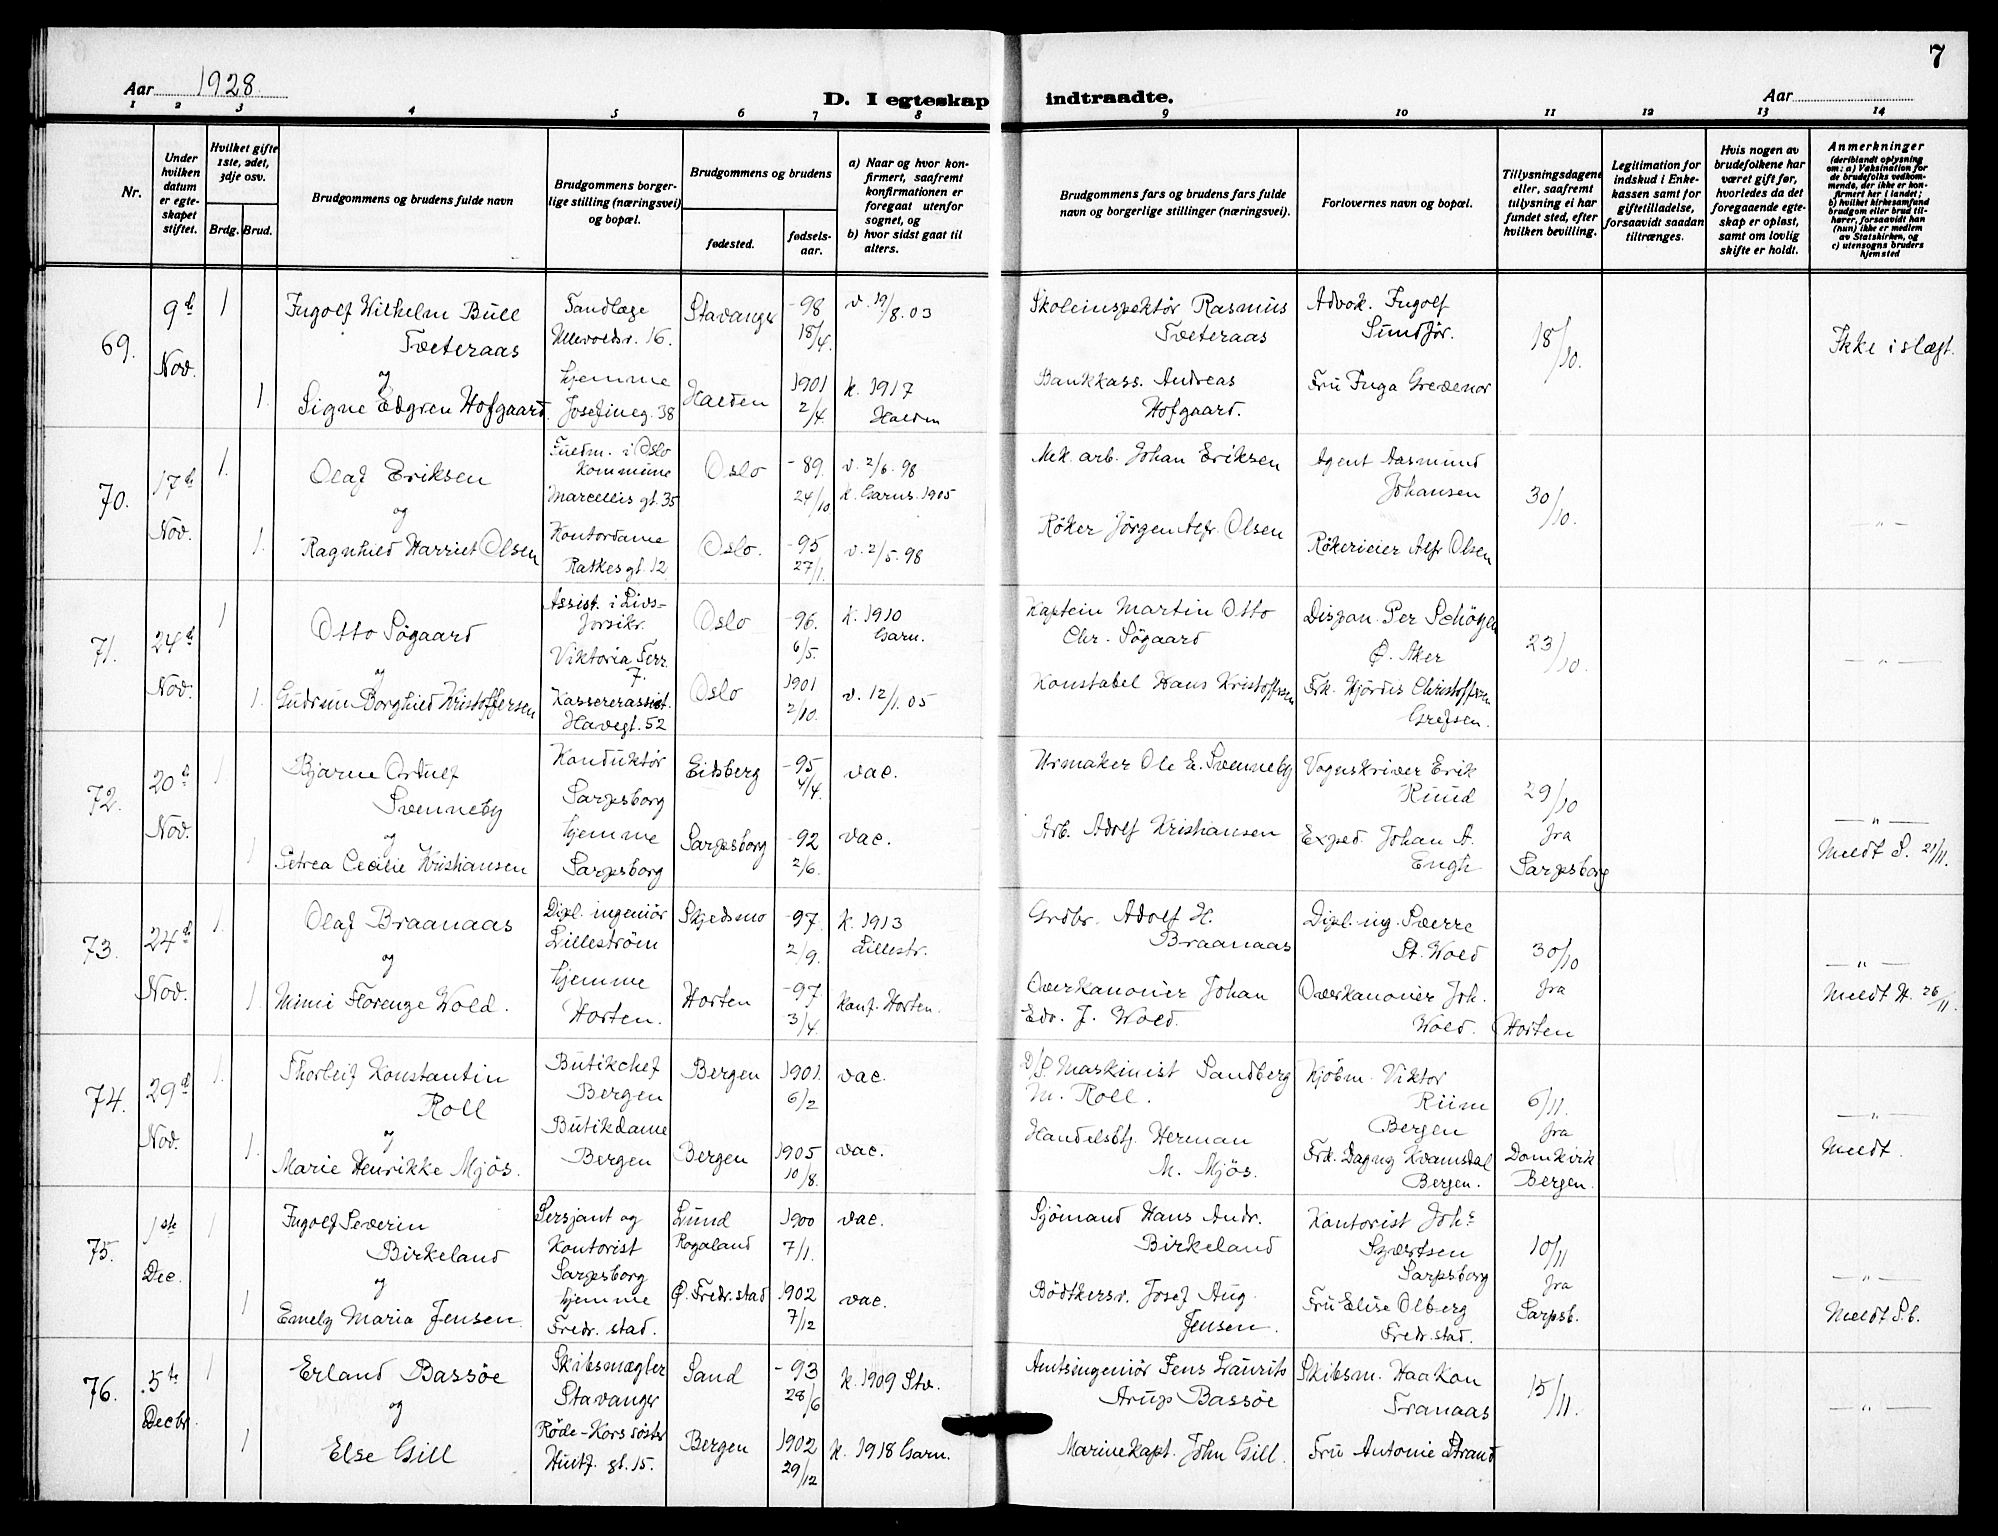 7
Aar 1928.
D. I egteskap indtraadte.
Aar
1 2 3 4 5 6 7 8 9 10 11 12 13 14
Nr.
Under hvilken datum er egteskapet stiftet.
Hvilket gifte 1ste, 2det, 3dje osv.
Brdg. Brud.
Brudgommens og brudens fulde navn
Brudgommens borgerlige stilling (næringsvei) og bopæl.
Brudgommens og brudens
fødested.
fødselsaar.
a) Naar og hvor konfirmert, saafremt konfirmationen er foregaat utenfor sognet, og
b) hvor sidst gaat til alters.
Brudgommens fars og brudens fars fulde navn og borgerlige stillinger (næringsvei).
Forlovernes navn og bopæl.
Tillysningsdagene eller, saafremt tillysning ei har fundet sted, efter hvilken bevilling.
Legitimation for indskud i Enkekassen samt for giftetilladelse, forsaavidt saadan tiltrænges.
Hvis nogen av brudefolkene har været gift før, hvorledes da det foregaaende egteskap er opløst, samt om lovlig skifte er holdt.
Anmerkninger
(deriblandt oplysning om: a) Vaksination for de brudefolks vedkommende, der ikke er konfirmert her i landet;
b) hvilket kirkesamfund brudgom eller brud tilhører, forsaavidt han (hun) ikke er medlem av Statskirken, og
c) utensogns bruders hjemsted
69.
9d Nov.
1
Ingolf Wilhelm Bull
Tveteraas
og
1. Signe Edgren Hofgaard.
Tandlæge
Ullevoldsv. 16.
hjemme
Josefineg. 38
Stavanger
Halden
-98
18/4.
1901
2/4.
v. 19/8. 03
k. 1917
Halden
Skoleinspektør Rasmus
Tveteraas
Bankkass. Andreas
Hofgaard.
Advok. Ingolf
Sundfør.
Fru Inga Gredenor
18/10.
Ikke i slægt.
70.
17d Nov.
1.
Olaf Eriksen
og
1. Ragnhild Harriet Olsen
Fuldm. i Oslo
Kommune
Marcellis gt. 35
Kontordame
Ratkes gt. 12
Oslo
Oslo.
-89.
24/10
-95
27/1.
v. 2/6. 98
k. Garns. 1905
v. 2/5. 98
Mek. arb. Johan Eriksen
Røker Jørgen Alfr. Olsen
Agent Aasmund
Johansen
Røkerieier Alfr. Olsen
30/10.
— " —
71.
24d Nov.
1
Otto Søgaard
og
1. Gudrun Borghild Kristoffersen
Assist. i Livs-
forsikr.
Viktoria Terr.
7.
Kassererassist.
Havegt. 52
Oslo
Oslo
-96.
6/5.
1901
2/10.
k. 1910
Garn.
v. 12/1. 05
Kaptein Martin Otto
Chr. Søgaard
Konstabel Hans Kristoffersen
Dispon. Per Schøyen
Ø. Aker
Frk. Hjørdis Christoffersen
Grefsen.
23/10.
— " —
72.
20d Nov.
1
Bjarne Ordulf
Svenneby
og
1 Petrea Cecilie Kristiansen
Konduktør
Sarpsborg
hjemme
Sarpsborg
Eidsberg
Sarpsborg
-95
4/4.
-92
2/6.
vac.
vac.
Urmaker Ole E. Svenneby
Arb. Adolf Kristiansen
Vognskriver Erik
Ruud
Exped. Johan A.
Engh
29/10
fra
Sarpsborg
— " —
Meldt S. 21/11.
73.
24d Nov.
1.
Olaf Braanaas
og
1. Mimi Florenze Wold.
Dipl. ingeniør
Lillestrøm
hjemme
Horten.
Skjedsmo
Horten
-97.
2/9.
-97
3/4.
k. 1913
Lillestr.
Konf. Horten.
Grdbr. Adolf H.
Braanaas
Overkanoner Johan
Edv. J. Wold.
Dipl. ing. Sverre
St. Wold
Overkanoner Joh.
Wold.
30/10
fra
Horten
— " —
Meldt H. 26/11.
74.
29d Nov.
1.
Thorleif Konstantin
Roll
og
1. Marie Henrikke Mjøs.
Butikchef
Bergen
Butikdame
Bergen
Bergen
Bergen
1901.
6/2
1905
10/8.
vac.
vac.
D/S. Maskinist Sandberg
M. Roll.
Handelsbtj. Herman
M. Mjøs.
Kjøbm. Viktor
Riim
Bergen
Frk. Dagny Kvamsdal
Bergen.
6/11.
fra
Domkirk
Bergen.
— " —
Meldt.
75.
1ste Dec.
1
Ingolf Severin
Birkeland
og
1 Emely Maria Jensen.
Sersjant og
Kontorist
Sarpsborg
hjemme
Fredr. stad.
Lund
Rogaland
Ø. Fredr. stad
1900
7/1.
1902
7/12
vac.
vac.
Sjømand Hans Andr.
Birkeland
Bødtkersv. Josef Aug.
Jensen.
Kontorist Joh.
Syvertsen
Sarpsborg
Fru Elise Olberg
Fredr. stad.
10/11
fra
Sarpsb.
— " —
Meldt S.b.
76.
5te Decbr.
1
Erland Bassøe
og
1 Else Gill
Skibsmægler
Stavanger
Røde-Kors søster
Huitf. gt. 15.
Sand
Bergen
-93
28/6
1902
29/12
k. 1909 Stv.
k. 1918 Garn.
Amtsingeniør Jens Laurits
Arup Bassøe
Marinekapt. John Gill.
Skibsm. Haakon
Tranaas
Fru Antonie Strand
15/11.
— " —